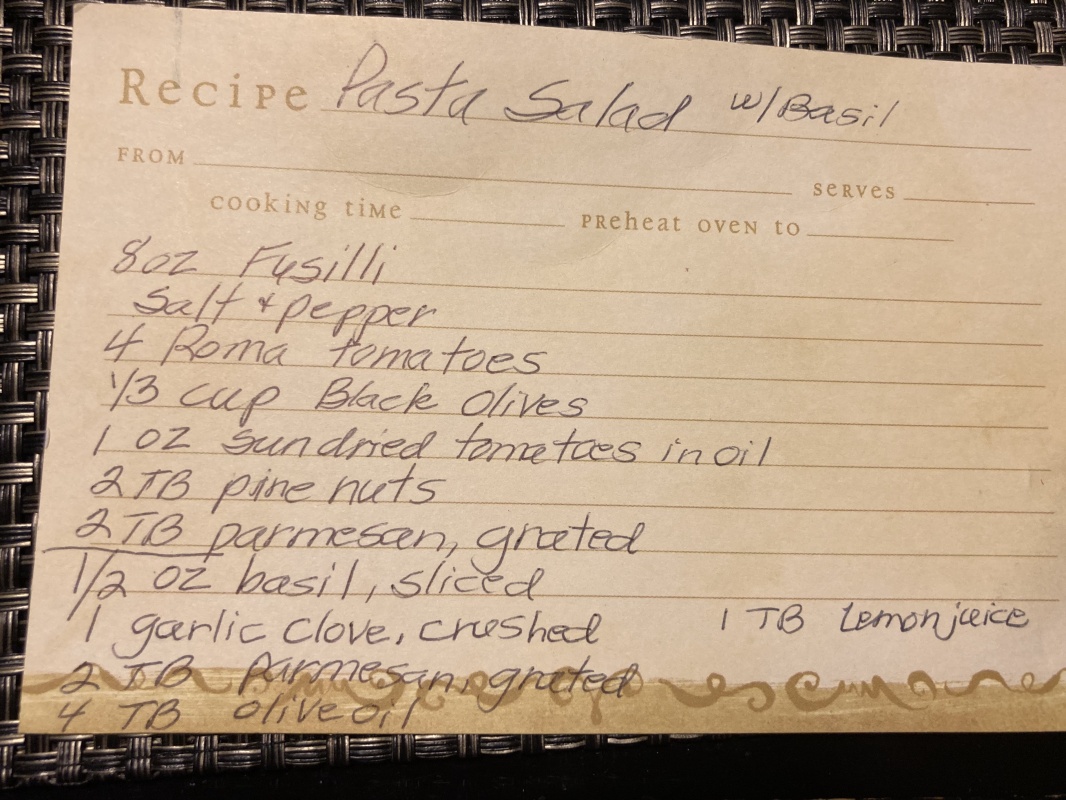 Recipe Pasta Salad w/Basil
FROM serves
cooking time Preheat oven to
8oz Fusilli
Salt + pepper
4 Roma tomatoes
1/3 cup Black Olives
1 oz sundried tomatoes in oil
2 TB pine nuts
2 TB parmesan, grated
1/2 oz basil, sliced
1 garlic clove, crushed 1 TB Lemon juice
2 TB parmesan, grated
4 TB olive oil